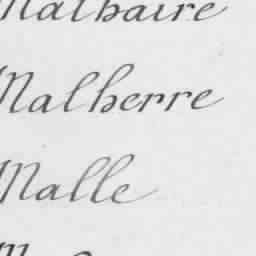 Malbaire
Malherre
Malle